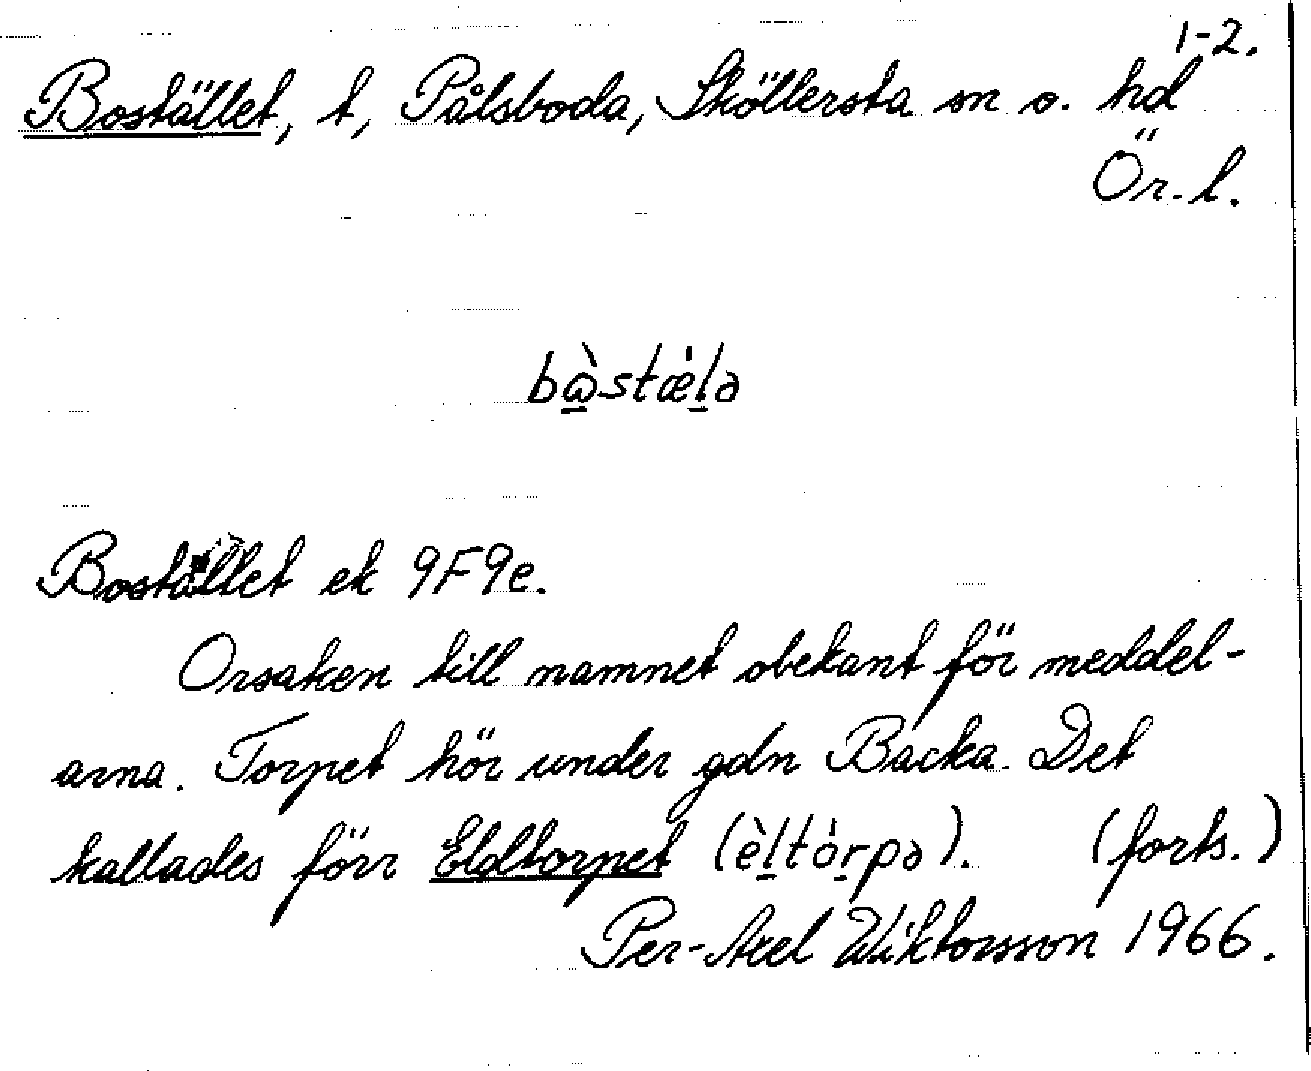 1-2.
Bostället, t, Pålsboda, Sköllersta sn o. hd
Ör. l.
bὼ̠stæ̍l̠ə
Bostället ek 9F9e.
Orsaken till namnet obekant för meddel-
arna. Torpet hör under gdn Backa. Det
kallades förr Eldtorpet (èl̠tȯr̠pə). (forts.)
Per-Axel Wiktorsson 1966.